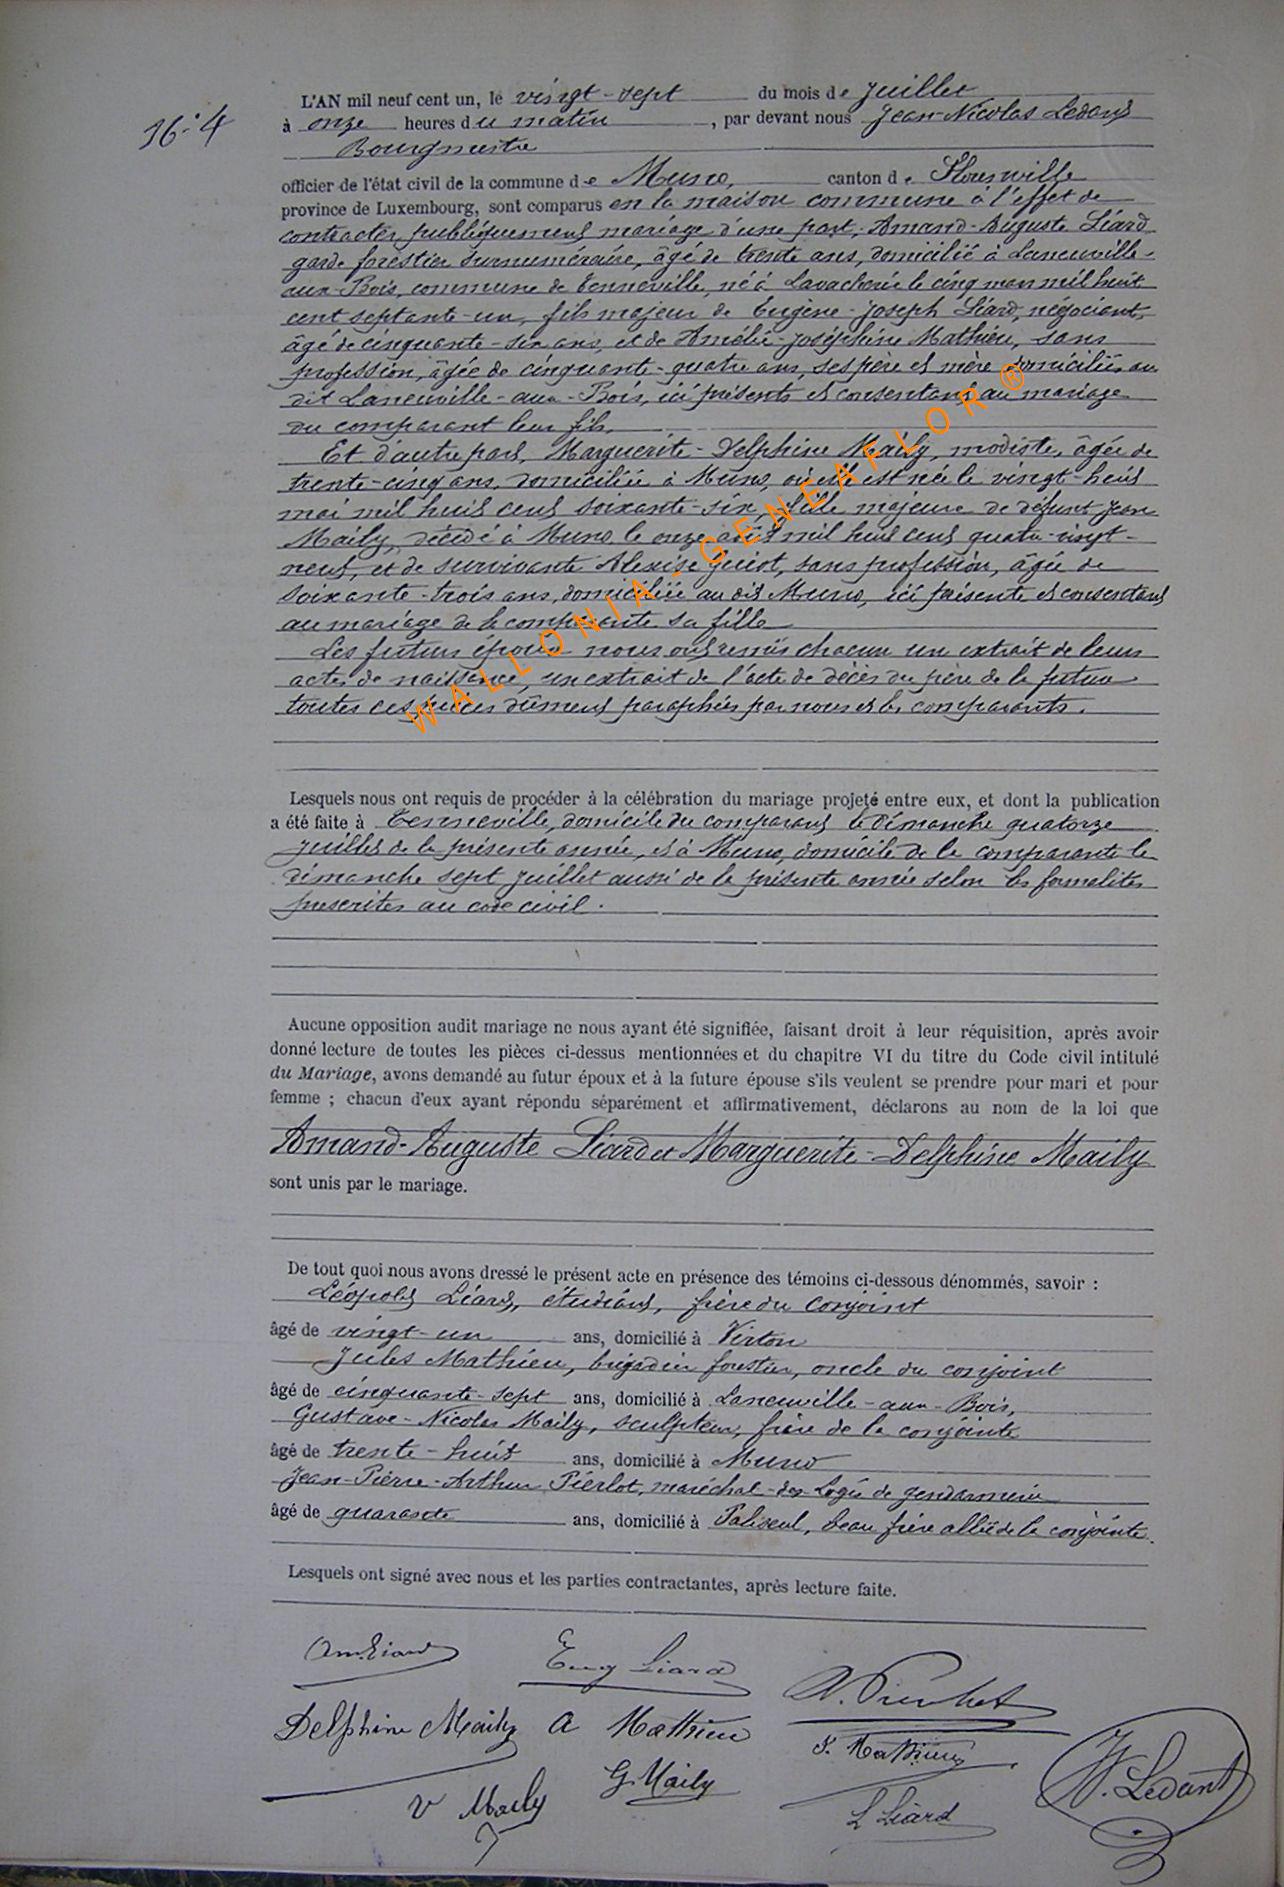 N° 4
L'AN mil neuf cent un, le vingt-sept du mois de Juillet
à onze heures du matin, par devant nous Jean-Nicolas Ledant
Bourgmestre
officier de l'état civil de la commune de Muno, canton de Florenville
province de Luxembourg, sont comparus en la maison commune à l'effet de
contracter publiquement mariage d'une part, Amand-Auguste Liard
garde forestier surnuméraire, âgé de trente ans, domicilié à Laneuville-
aux-Bois, commune de Tenneville, né à Lavacherie le cinq mars mil huit
cent septante-un, fils majeur de Eugène-Joseph Liard, négociant,
âgé de cinquante-six ans, et de Amélie-Joséphine Mathieu, sans
profession, âgée de cinquante-quatre ans, ses père et mère domiciliés au
dit Laneuville-aux-Bois, ici présents et consentant au mariage
du comparant leur fils.
Et d'autre part, Marguerite-Delphine Maily, modiste, âgée de
trente-cinq ans, domiciliée à Muno, où elle est née le vingt-huit
mai mil huit cent soixante-six, fille majeure de défunt Jean
Maily, décédé à Muno, le onze août mil huit cent quatre-vingt-
neuf, et de survivante Alexise Guiot, sans profession, âgée de
soixante-trois ans, domiciliée au dit Muno, ici présente et consentant
au mariage de la comparante sa fille
Les futurs époux nous ont remis chacun un extrait de leurs
actes de naissance, un extrait de l'acte de décès du père de la future
toutes ces pièces dûment paraphées par nous et les comparants.
Lesquels nous ont requis de procéder à la célébration du mariage projeté entre eux, et dont la publication
a été faite à Tenneville, domicile du comparant le dimanche quatorze
juillet de la présente année, et à Muno, domicile de la comparante le
dimanche sept juillet aussi de la présente année selon les formalités
prescrites au code civil.
Aucune opposition audit mariage ne nous ayant été signifiée, faisant droit à leur réquisition, après avoir
donné lecture de toutes les pièces ci-dessus mentionnées et du chapitre VI du titre du Code civil intitulé
du Mariage, avons demandé au futur époux et à la future épouse s'ils veulent se prendre pour mari et pour
femme ; chacun d'eux ayant répondu séparément et affirmativement, déclarons au nom de la loi que
Amand-Auguste Liard et Marguerite-Delphine Maily
sont unis par le mariage.
De tout quoi nous avons dressé le présent acte en présence des témoins ci-dessous dénommés, savoir :
Léopold Liard, étudiant, frère du conjoint
âgé de vingt-un ans, domicilié à Virton
Jules Mathieu, brigadier forestier, oncle du conjoint
âgé de cinquante-sept ans, domicilié à Laneuville-aux-Bois,
Gustave-Nicolas Maily, sculpteur, frère de la conjointe
âgé de trente-huit ans, domicilié à Muno
Jean-Pierre-Arthur Pierlot, maréchal-des-Logis de gendarmerie
âgé de quarante ans, domicilié à Paliseul, beau frère allié de la conjointe.
Lesquels ont signé avec nous et les parties contractantes, après lecture faite.
Am. Liard Eug Liard A. Pierlot
Delphine Maily A Mathieu J. Mathieu
V Maily G Maily L Liard N. Ledant
WALLONIA-GENEAFLOR®